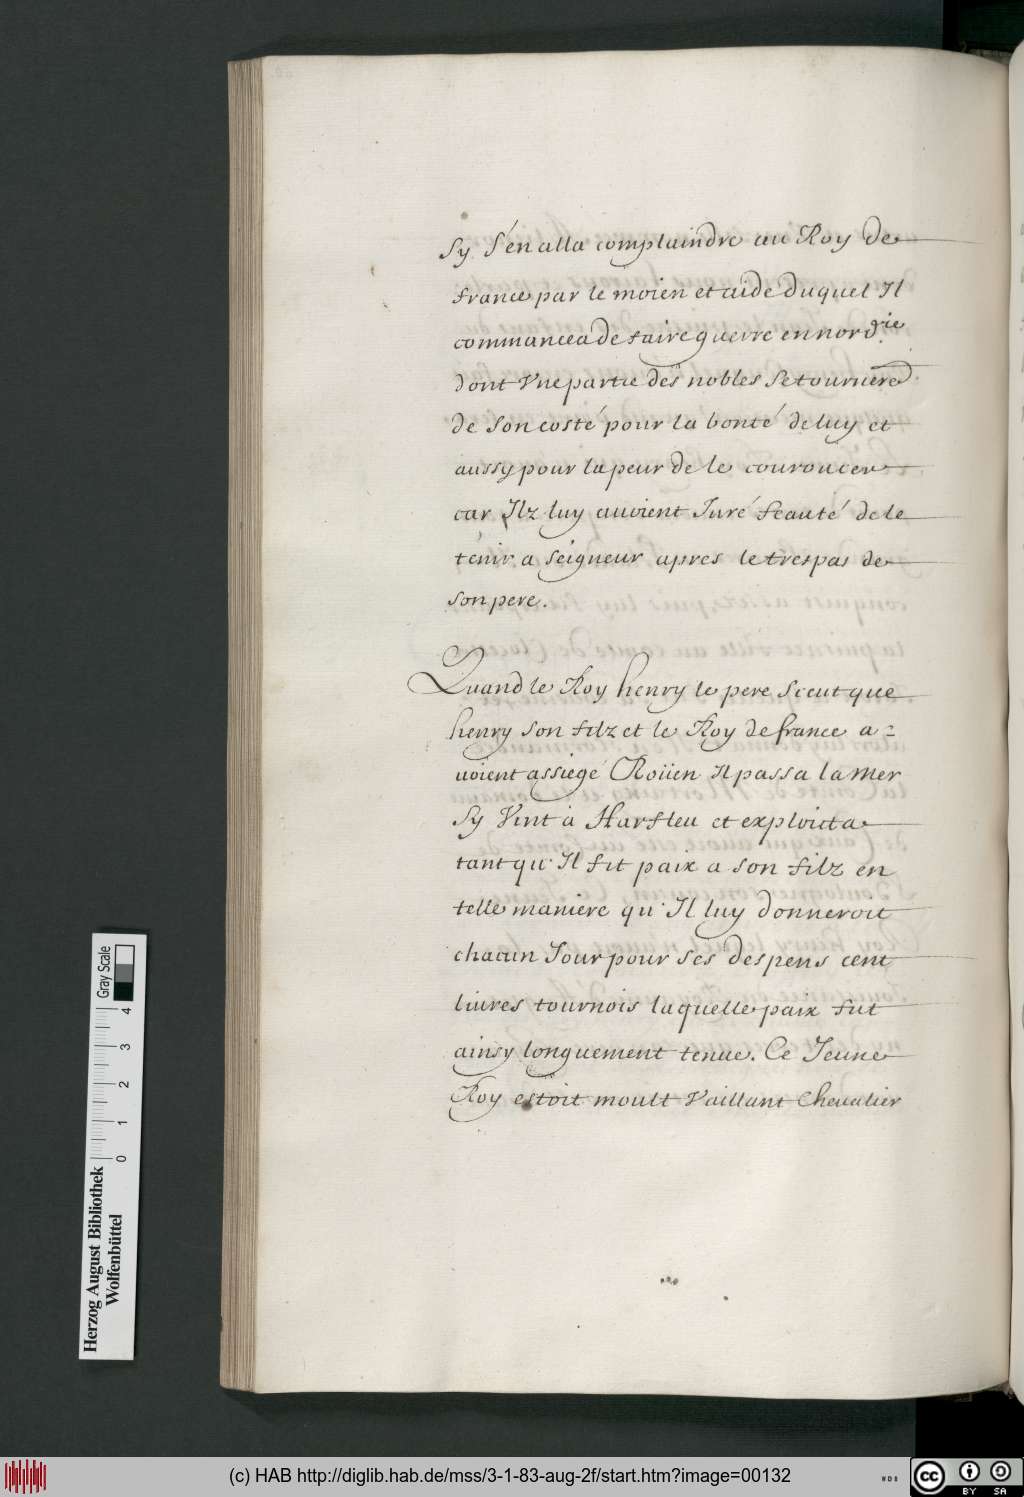 Sy S'en alla complaindre au Roy de
france par le moien et aide duquel Il
commancea de faire guerre en nord.rie
dont Vne partie des nobles Se tournered.
de Son costé pour la bonté de luy et
aussy pour la peur de le couroucer
car Ilz luy auoient Iuré feauté de le
tenir a Seigneur apres le trespas de
Son pere.
Quand le Roy henry le pere Sceut que
henry Son filz et le Roy de france a=
uoient assiegé Roüen Il passa la Mer
Sy Vint à Harfleu et exploicta
tant qu'Il fit paix a Son filz en
telle maniere qu'Il luy donneroit
chacun Iour pour Ses despens cent
liures tournois laquelle paix fut
ainsy longuement tenue. Ce Ieune
Roy estoit moult Vaillant Cheualier
Gray Scale
0 1 2 3 4
Herzog August Bibliothek
Wolfenbüttel
(c) HAB http://diglib.hab.de/mss/3-1-83-aug-2f/start.htm?image=00132
WDB
cc BY SA